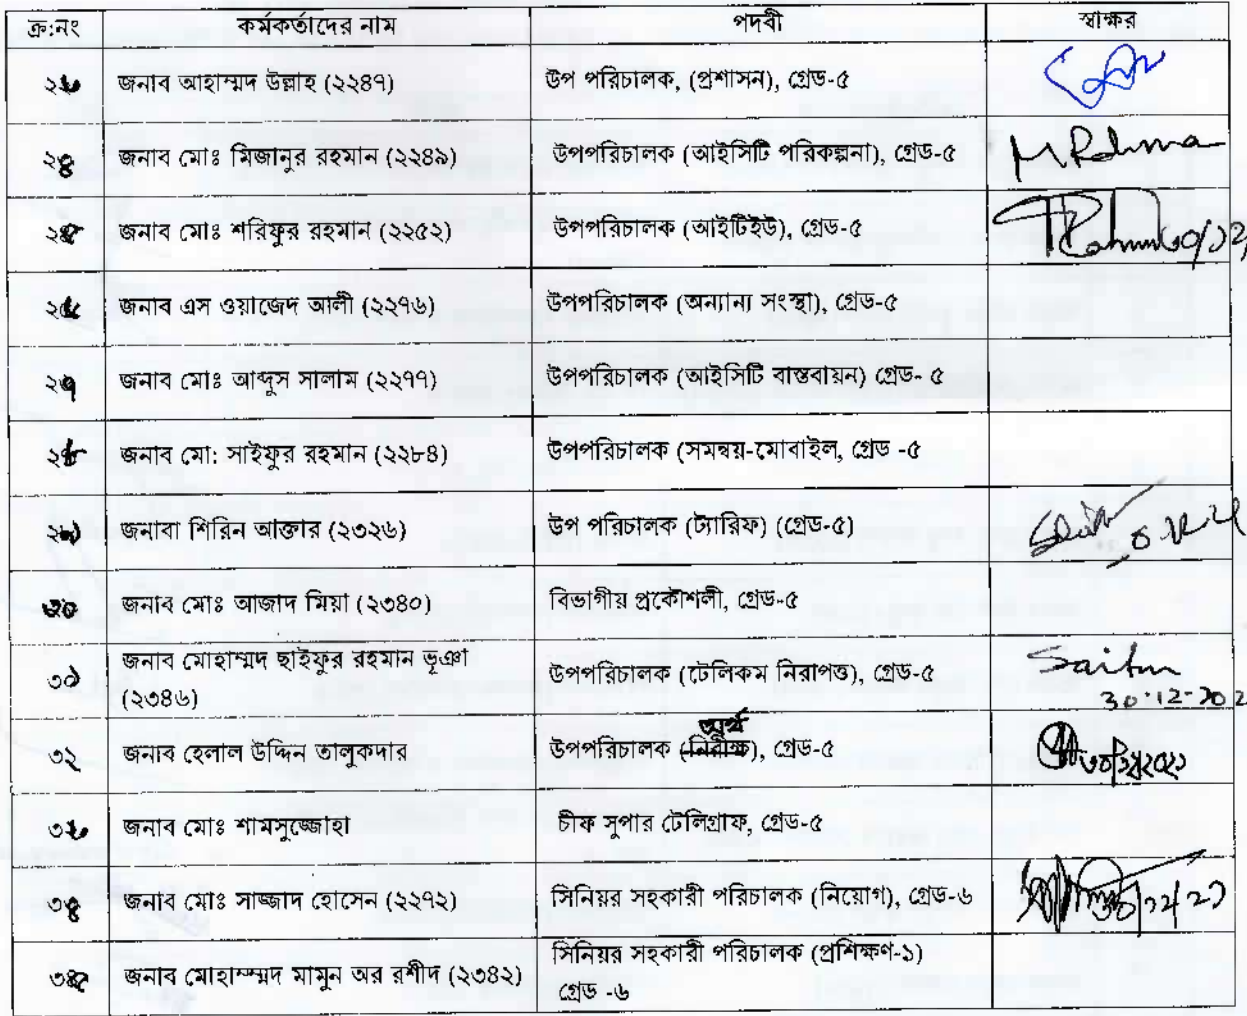 ক্র:নং কর্মকর্তাদের নাম পদবী স্বাক্ষর
২৩ জনাব আহাম্মদ উল্লাহ (২২৪৭) উপ পরিচালক, (প্রশাসন), গ্রেড-৫
২৪ জনাব মোঃ মিজানুর রহমান (২২৪৯) উপপরিচালক (আইসিটি পরিকল্পনা), গ্রেড-৫ M. Rahma
২৫ জনাব মোঃ শরিফুর রহমান (২২৫২) উপপরিচালক (আইটিইউ), গ্রেড-৫
২৬ জনাব এস ওয়াজেদ আলী (২২৭৬) উপপরিচালক (অন্যান্য সংস্থা), গ্রেড-৫
২৭ জনাব মোঃ আব্দুস সালাম (২২৭৭) উপপরিচালক (আইসিটি বাস্তবায়ন) গ্রেড- ৫
২৮ জনাব মো: সাইফুর রহমান (২২৮৪) উপপরিচালক (সমন্বয়-মোবাইল, গ্রেড -৫
২৯ জনাবা শিরিন আক্তার (২৩২৬) উপ পরিচালক (ট্যারিফ) (গ্রেড-৫)
৩০ জনাব মোঃ আজাদ মিয়া (২৩৪০) বিভাগীয় প্রকৌশলী, গ্রেড-৫
জনাব মোহাম্মদ ছাইফুর রহমান ভূঞা
৩১ (২৩৪৬) উপপরিচালক (টেলিকম নিরাপত্ত), গ্রেড-৫ 30-12-202
অর্থ
৩২ জনাব হেলাল উদ্দিন তালুকদার উপপরিচালক (নিরীক্ষ), গ্রেড-৫
৩৩ জনাব মোঃ শামসুজ্জোহা চীফ সুপার টেলিগ্রাফ, গ্রেড-৫
৩৪ জনাব মোঃ সাজ্জাদ হোসেন (২২৭২) সিনিয়র সহকারী পরিচালক (নিয়োগ), গ্রেড-৬
৩৫ জনাব মোহাম্ম্মদ মামুন অর রশীদ (২৩৪২) সিনিয়র সহকারী পরিচালক (প্রশিক্ষণ-১)
গ্রেড -৬